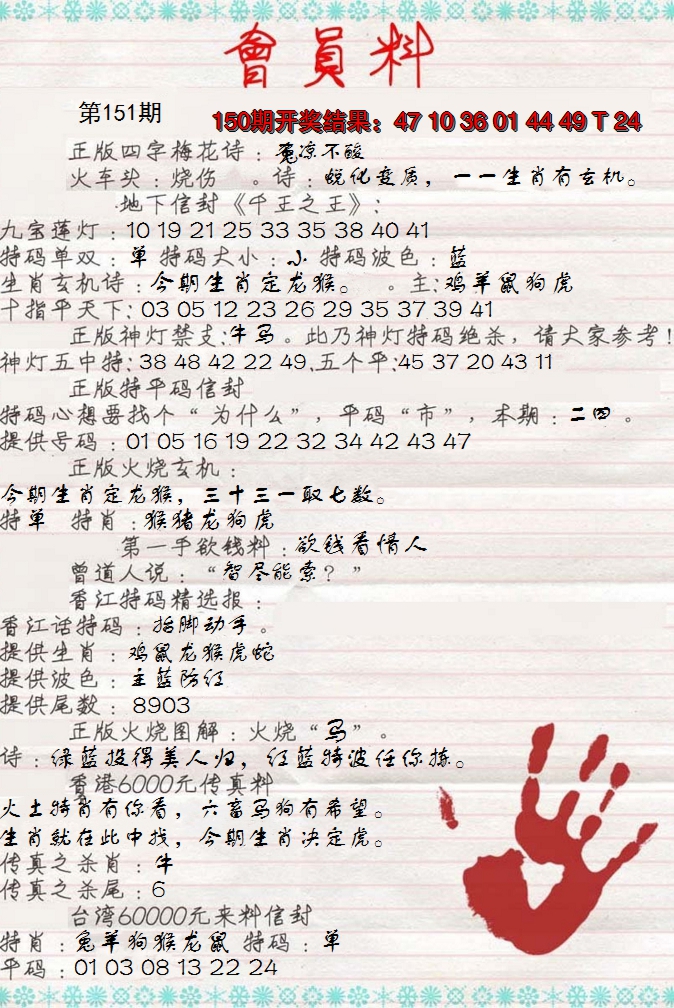 會員料
第151期
150期开奖结果：47 10 36 01 44 49 T 24
正版四字梅花诗：兔凉不酸
火车头：烧伤 。诗：蜕化变质，一一生肖有玄机。
地下信封《千王之王》：
九宝莲灯：10 19 21 25 33 35 38 40 41
特码单双：单 特码大小：小 特码波色：蓝
生肖玄机诗：今期生肖定龙猴。 。主：鸡羊鼠狗虎
十指平天下：03 05 12 23 26 29 35 37 39 41
正版神灯禁支：牛马。此乃神灯特码绝杀，请大家参考！
神灯五中特：38 48 42 22 49.五个平：45 37 20 43 11
正版特平码信封
特码心想要找个“为什么”，平码“市”，本期：二四。
提供号码：01 05 16 19 22 32 34 42 43 47
正版火烧玄机：
今期生肖定龙猴，三十三一取七数。
特单 特肖：猴猪龙狗虎
第一手欲钱料：欲钱看情人
曾道人说：“智尽能索？”
香江特码精选报：
香江话特码：抬脚动手。
提供生肖：鸡鼠龙猴虎蛇
提供波色：主蓝防红
提供尾数：8903
正版火烧图解：火烧“马”。
诗：绿蓝投得美人归，红蓝特波任你拣。
香港6000元传真料
火土特肖有你看，六畜马狗有希望。
生肖就在此中找，今期生肖决定虎。
传真之杀肖：牛
传真之杀尾：6
台湾60000元来料信封
特肖：兔羊狗猴龙鼠 特码：单
平码：01 03 08 13 22 24